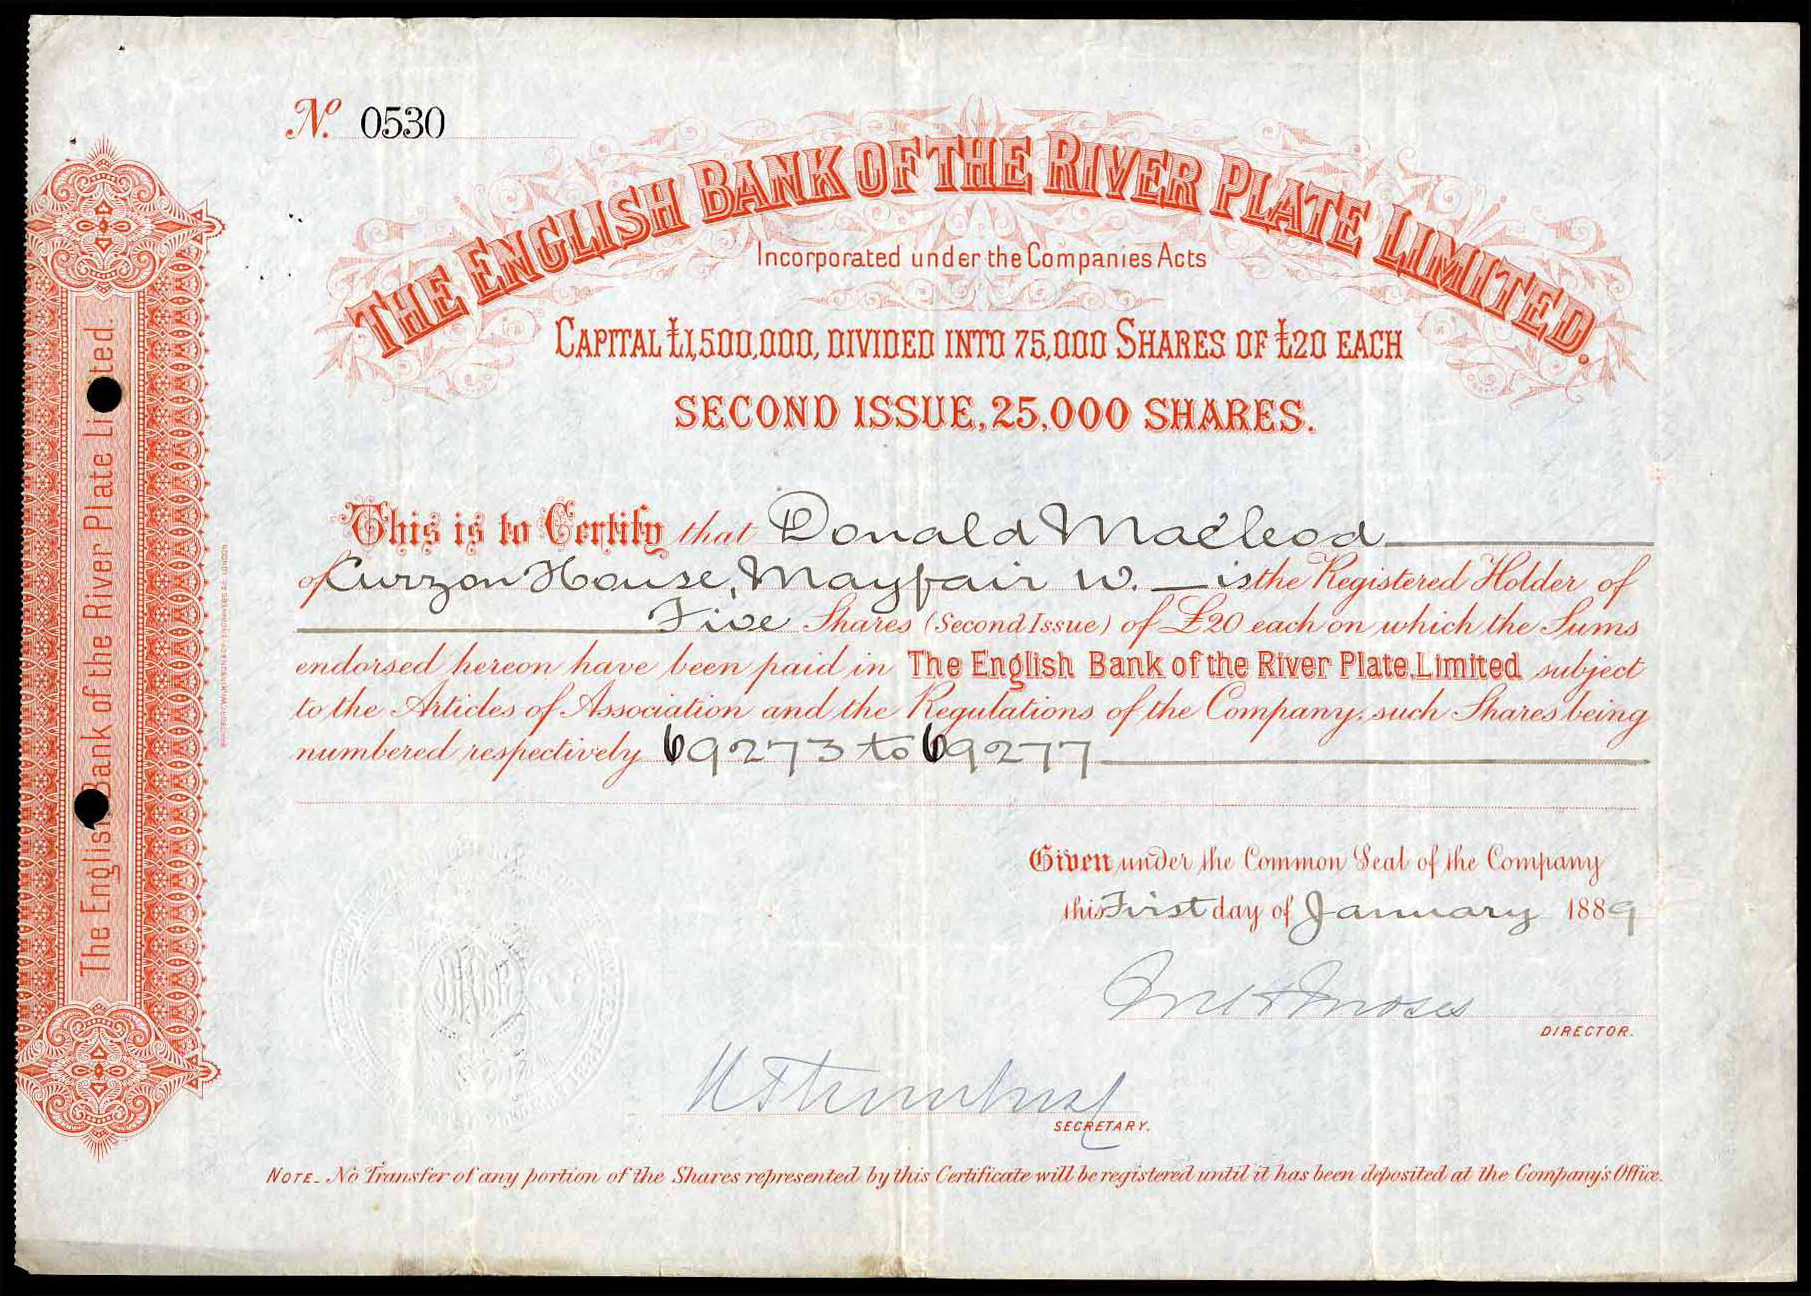 No. 0530
THE ENGLISH BANK OF THE RIVER PLATE LIMITED.
Incorporated under the Companies Acts
CAPITAL £1,500,000, DIVIDED INTO 75,000 SHARES OF £20 EACH
SECOND ISSUE, 25,000 SHARES.
This is to Certify that Donald Macleod
of Curzon House, Mayfair W. is the Registered Holder of
Five Shares (Second Issue) of £20 each on which the Sums
endorsed hereon have been paid in The English Bank of the River Plate, Limited subject
to the Articles of Association and the Regulations of the Company, such Shares being
numbered respectively 69273 to 69277
Given under the Common Seal of the Company
this First day of January 1889
DIRECTOR.
SECRETARY.
NOTE_ No Transfer of any portion of the Shares represented by this Certificate will be registered until it has been deposited at the Company's Office.
The English Bank of the River Plate Limited.